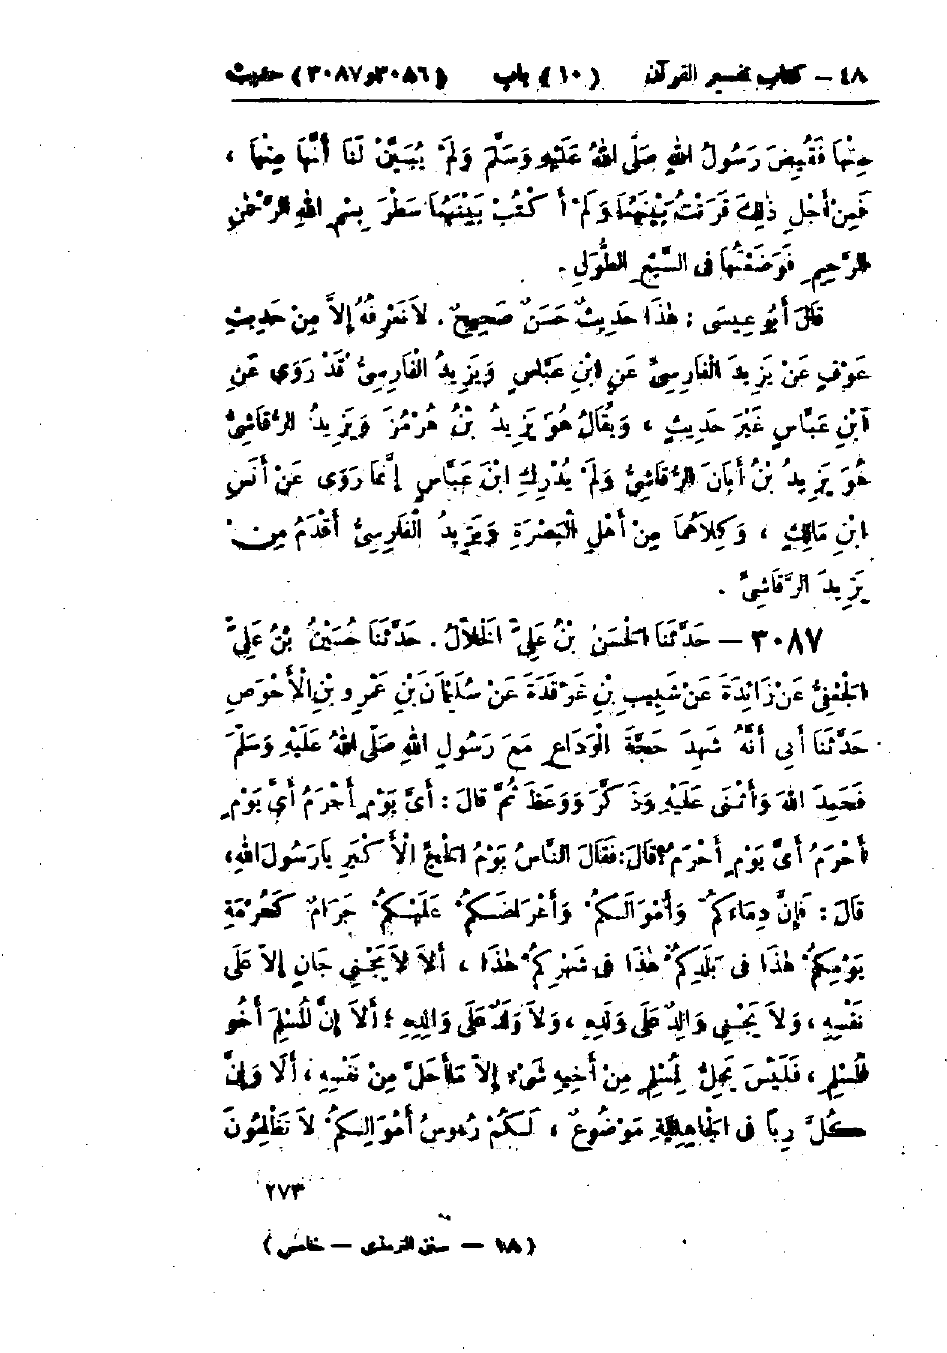 ٤٨ – كتاب تفسير القرآن (١٠) باب (٣٠٨٦ و ٣٠٨٧) حديث
مِنْهَا فَقُبِضَ رَسُولُ اللهِ صَلَّى اللهُ عَلَيْهِ وَسَلَّمَ وَلَمْ يُبَيِّنْ لَنَا أَنَّهَا مِنْهَا ،
فَمِنْ أَجْلِ ذٰلِكَ قَرَنْتُ بَيْنَهُمَا وَلَمْ أَكْتُبْ بَيْنَهُمَا سَطْرَ بِسْمِ اللهِ الرَّحْمٰنِ
الرَّحِيمِ فَوَضَعْتُهَا فى السَّبْعِ الطُّوَلِ .
قَالَ أَبُو عِيسَى : هٰذَا حَدِيثٌ حَسَنٌ صَحِيحٌ . لاَ نَعْرِفُهُ إلاَّ مِنْ حَدِيثِ
عَوْفٍ عَنْ يَزِيدَ الْفَارِسِىِّ عَنِ ابْنِ عَبَّاسٍ وَيَزِيدُ الْفَارِسِىُّ قَدْ رَوَى عَنِ
ابْنِ عَبَّاسٍ غَيْرَ حَدِيثٍ ، وَيُقَالُ هُوَ يَزِيدُ بْنُ هُرْمُزَ وَيَزِيدُ الرَّقَاشِىُّ
هُوَ يَزِيدُ بْنُ أَبَانَ الرَّقَاشِىُّ وَلَمْ يُدْرِكِ ابْنَ عَبَّاسٍ إِنَّمَا رَوَى عَنْ أَنَسِ
ابْنِ مَالِكٍ ، وَكِلاَهُمَا مِنْ أَهْلِ الْبَصْرَةِ وَيَزِيدُ الْفَارِسِىُّ أَقْدَمُ مِنْ
يَزِيدَ الرَّقَاشِىِّ .
٣٠٨٧ – حَدَّثَنَا الْحَسَنُ بْنُ عَلِىٍّ الْخَلاَّلُ . حَدَّثَنَا حُسَيْنُ بْنُ عَلِىٍّ
الْجُعْفِىُّ عَنْ زَائِدَةَ عَنْ شَبِيبِ بْنِ غَرْقَدَةَ عَنْ سُلَيْمَانَ بْنِ عَمْرِو بْنِ الْأَحْوَصِ
حَدَّثَنَا أَبِى أَنَّهُ شَهِدَ حَجَّةَ الْوَدَاعِ مَعَ رَسُولِ اللهِ صَلَّى اللهُ عَلَيْهِ وَسَلَّمَ
فَحَمِدَ اللهَ وَأَثْنَى عَلَيْهِ وَذَكَّرَ وَوَعَظَ ثُمَّ قَالَ : أَىُّ يَوْمٍ أَحْرَمُ أَىُّ يَوْمٍ
أَحْرَمُ أَىُّ يَوْمٍ أَحْرَمُ؟ قَالَ: فَقَالَ النَّاسُ يَوْمُ الْحَجِّ الْأَكْبَرِ يَا رَسُولَ اللهِ،
قَالَ : فَإِنَّ دِمَاءَكُمْ وَأَمْوَالَكُمْ وَأَعْرَاضَكُمْ عَلَيْكُمْ حَرَامٌ كَحُرْمَةِ
يَوْمِكُمْ هٰذَا فى بَلَدِكُمْ هٰذَا فى شَهْرِكُمْ هٰذَا ، أَلاَ لاَ يَجْنِى جَانٍ إلاَّ عَلَى
نَفْسِهِ ، وَلاَ يَجْنِى وَالِدٌ عَلَى وَلَدِهِ ، وَلاَ وَلَدٌ عَلَى وَالِدِهِ ؛ أَلاَ إِنَّ الْمُسْلِمَ أَخُو
الْمُسْلِمِ ، فَلَيْسَ يَحِلُّ لِمُسْلِمٍ مِنْ أَخِيهِ شَىْءٌ إلاَّ مَا أَحَلَّ مِنْ نَفْسِهِ ، أَلَا وَإِنَّ
كُلَّ رِبًا فى الْجَاهِلِيَّةِ مَوْضُوعٌ ، لَكُمْ رُءُوسُ أَمْوَالِكُمْ لاَ تَظْلِمُونَ
٢٧٣
( ١٨ – سنن الترمذى – خامس )